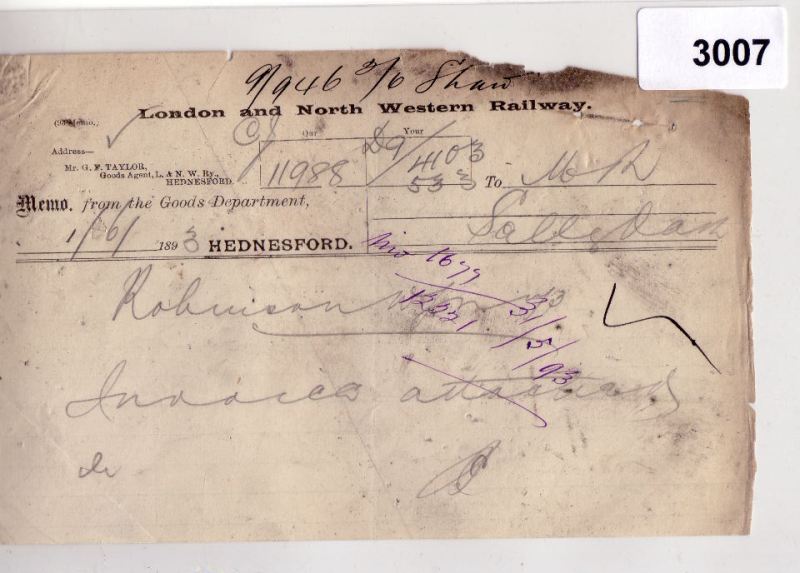 3007
9/946 o/o Shaw
London and North Western Railway.
(93 Memo.)
Our
Your
Address—
Mr. G. F. TAYLOR,
Goods Agent, L. & N. W. Ry.,
HEDNESFORD.
11988
D9/4103
533
To
Memo. from the Goods Department,
1/6/ 1893 HEDNESFORD.
Inv 1677
Robinson
12221 31/5/93
Invoice attached